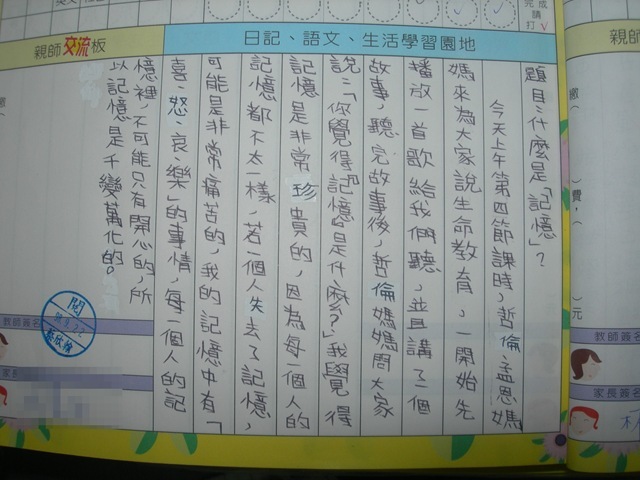 完成
請
打√
親師交流板
日記、語文、生活學習園地
親師
題目:什麼是「記憶」?
今天上午第四節課時,哲倫孟恩媽
媽來為大家說生命教育,一開始先
播放一首歌給我們聽,並且講了一個
故事,聽完故事後,哲倫媽媽問大家
說:「你覺得『記憶』是什麼?」我覺得
記憶是非常珍貴的,因為每一個人的
記憶都不太一樣,若一個人失去了記憶,
可能是非常痛苦的,我的記憶中有「
喜、怒、哀、樂」的事情,每一個人的記
憶裡,不可能只有開心的,所
以記憶是千變萬化的。
繳(
)費,(
)元
教師簽名
閱
家長
教師簽名
家長簽名